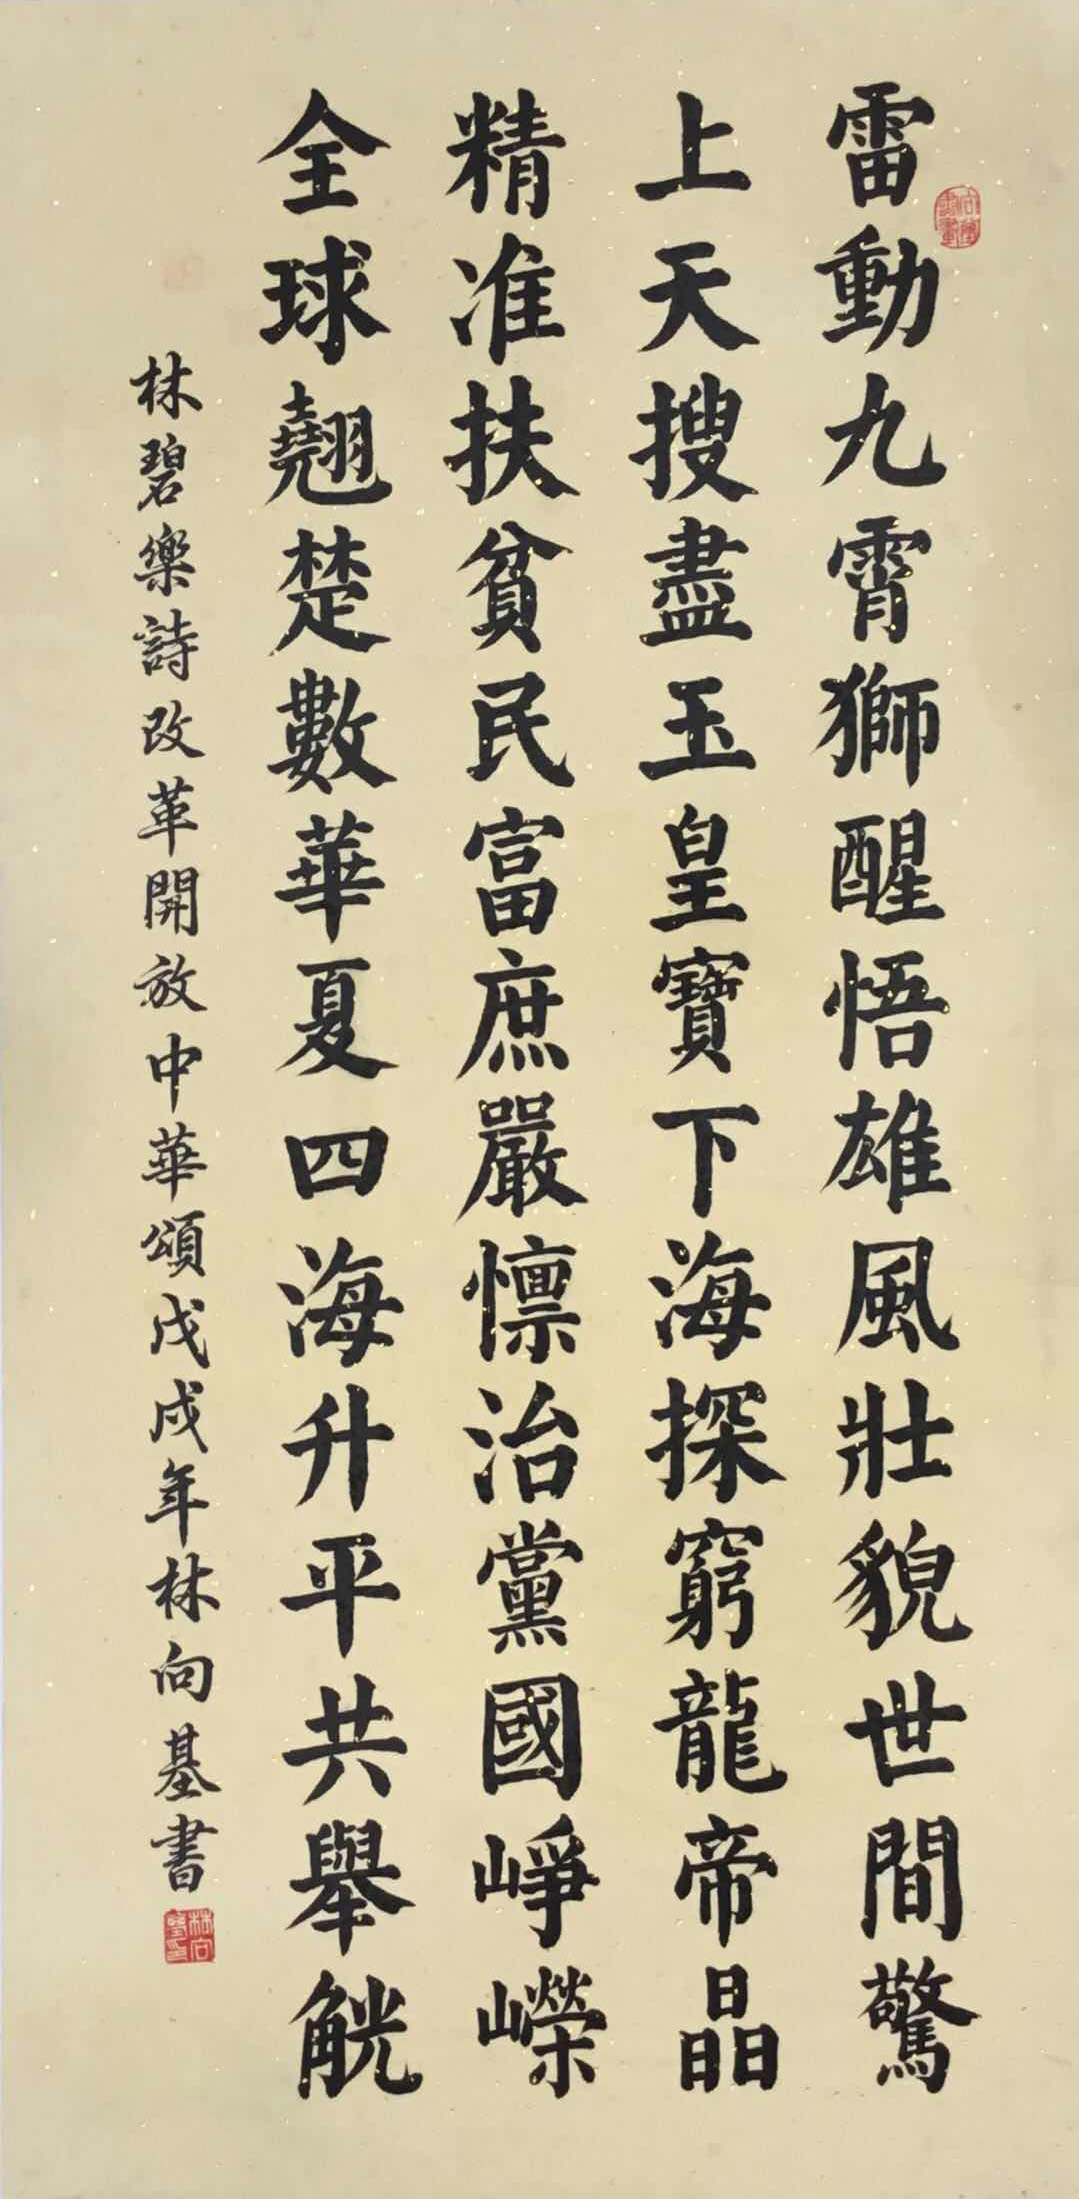 雷動九霄獅醒悟雄風壯貌世間驚
上天搜盡玉皇寶下海探窮龍帝晶
精准扶貧民富庶嚴懍治黨國崢嶸
全球翹楚數華夏四海升平共舉觥
林碧樂詩改革開放中華頌戊戌年林向基書